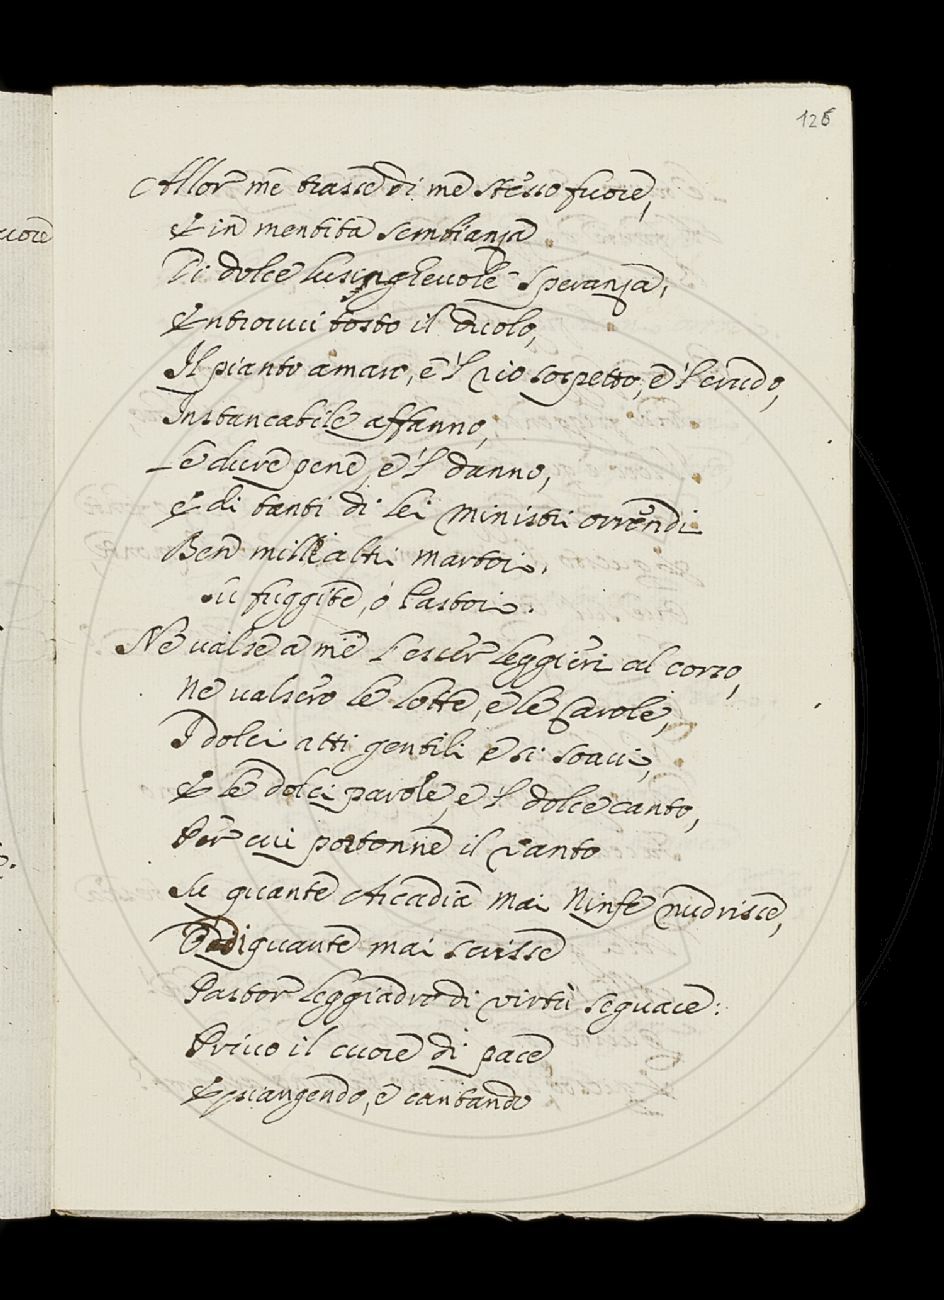 126
Allor mè trasse di mè stesso fuore,
E in mentita sembianza
Di dolce lusinghevole speranza,
Entrovvi tosto il duolo,
Il pianto amaro, e 'l rio sospetto, e 'l crudo,
Instancabile affanno,
Le dure pene, e 'l danno,
E di tanti di lei ministri orrendi
Ben mill' altri martori.
fuggite, o Pastori.
Nè valse a mè l'esser leggieri al corso,
Nè valsero le lotte, e le Carole,
I dolci atti gentili e si soavi,
E le dolci parole, e 'l dolce canto,
Per cui portonne il vanto
Su quante Arcadia mai Ninfe nudrisce,
quante mai scrisse
Pastor leggiadro di virtù seguace:
Privo il cuore di pace
E piangendo, e cantando
uore